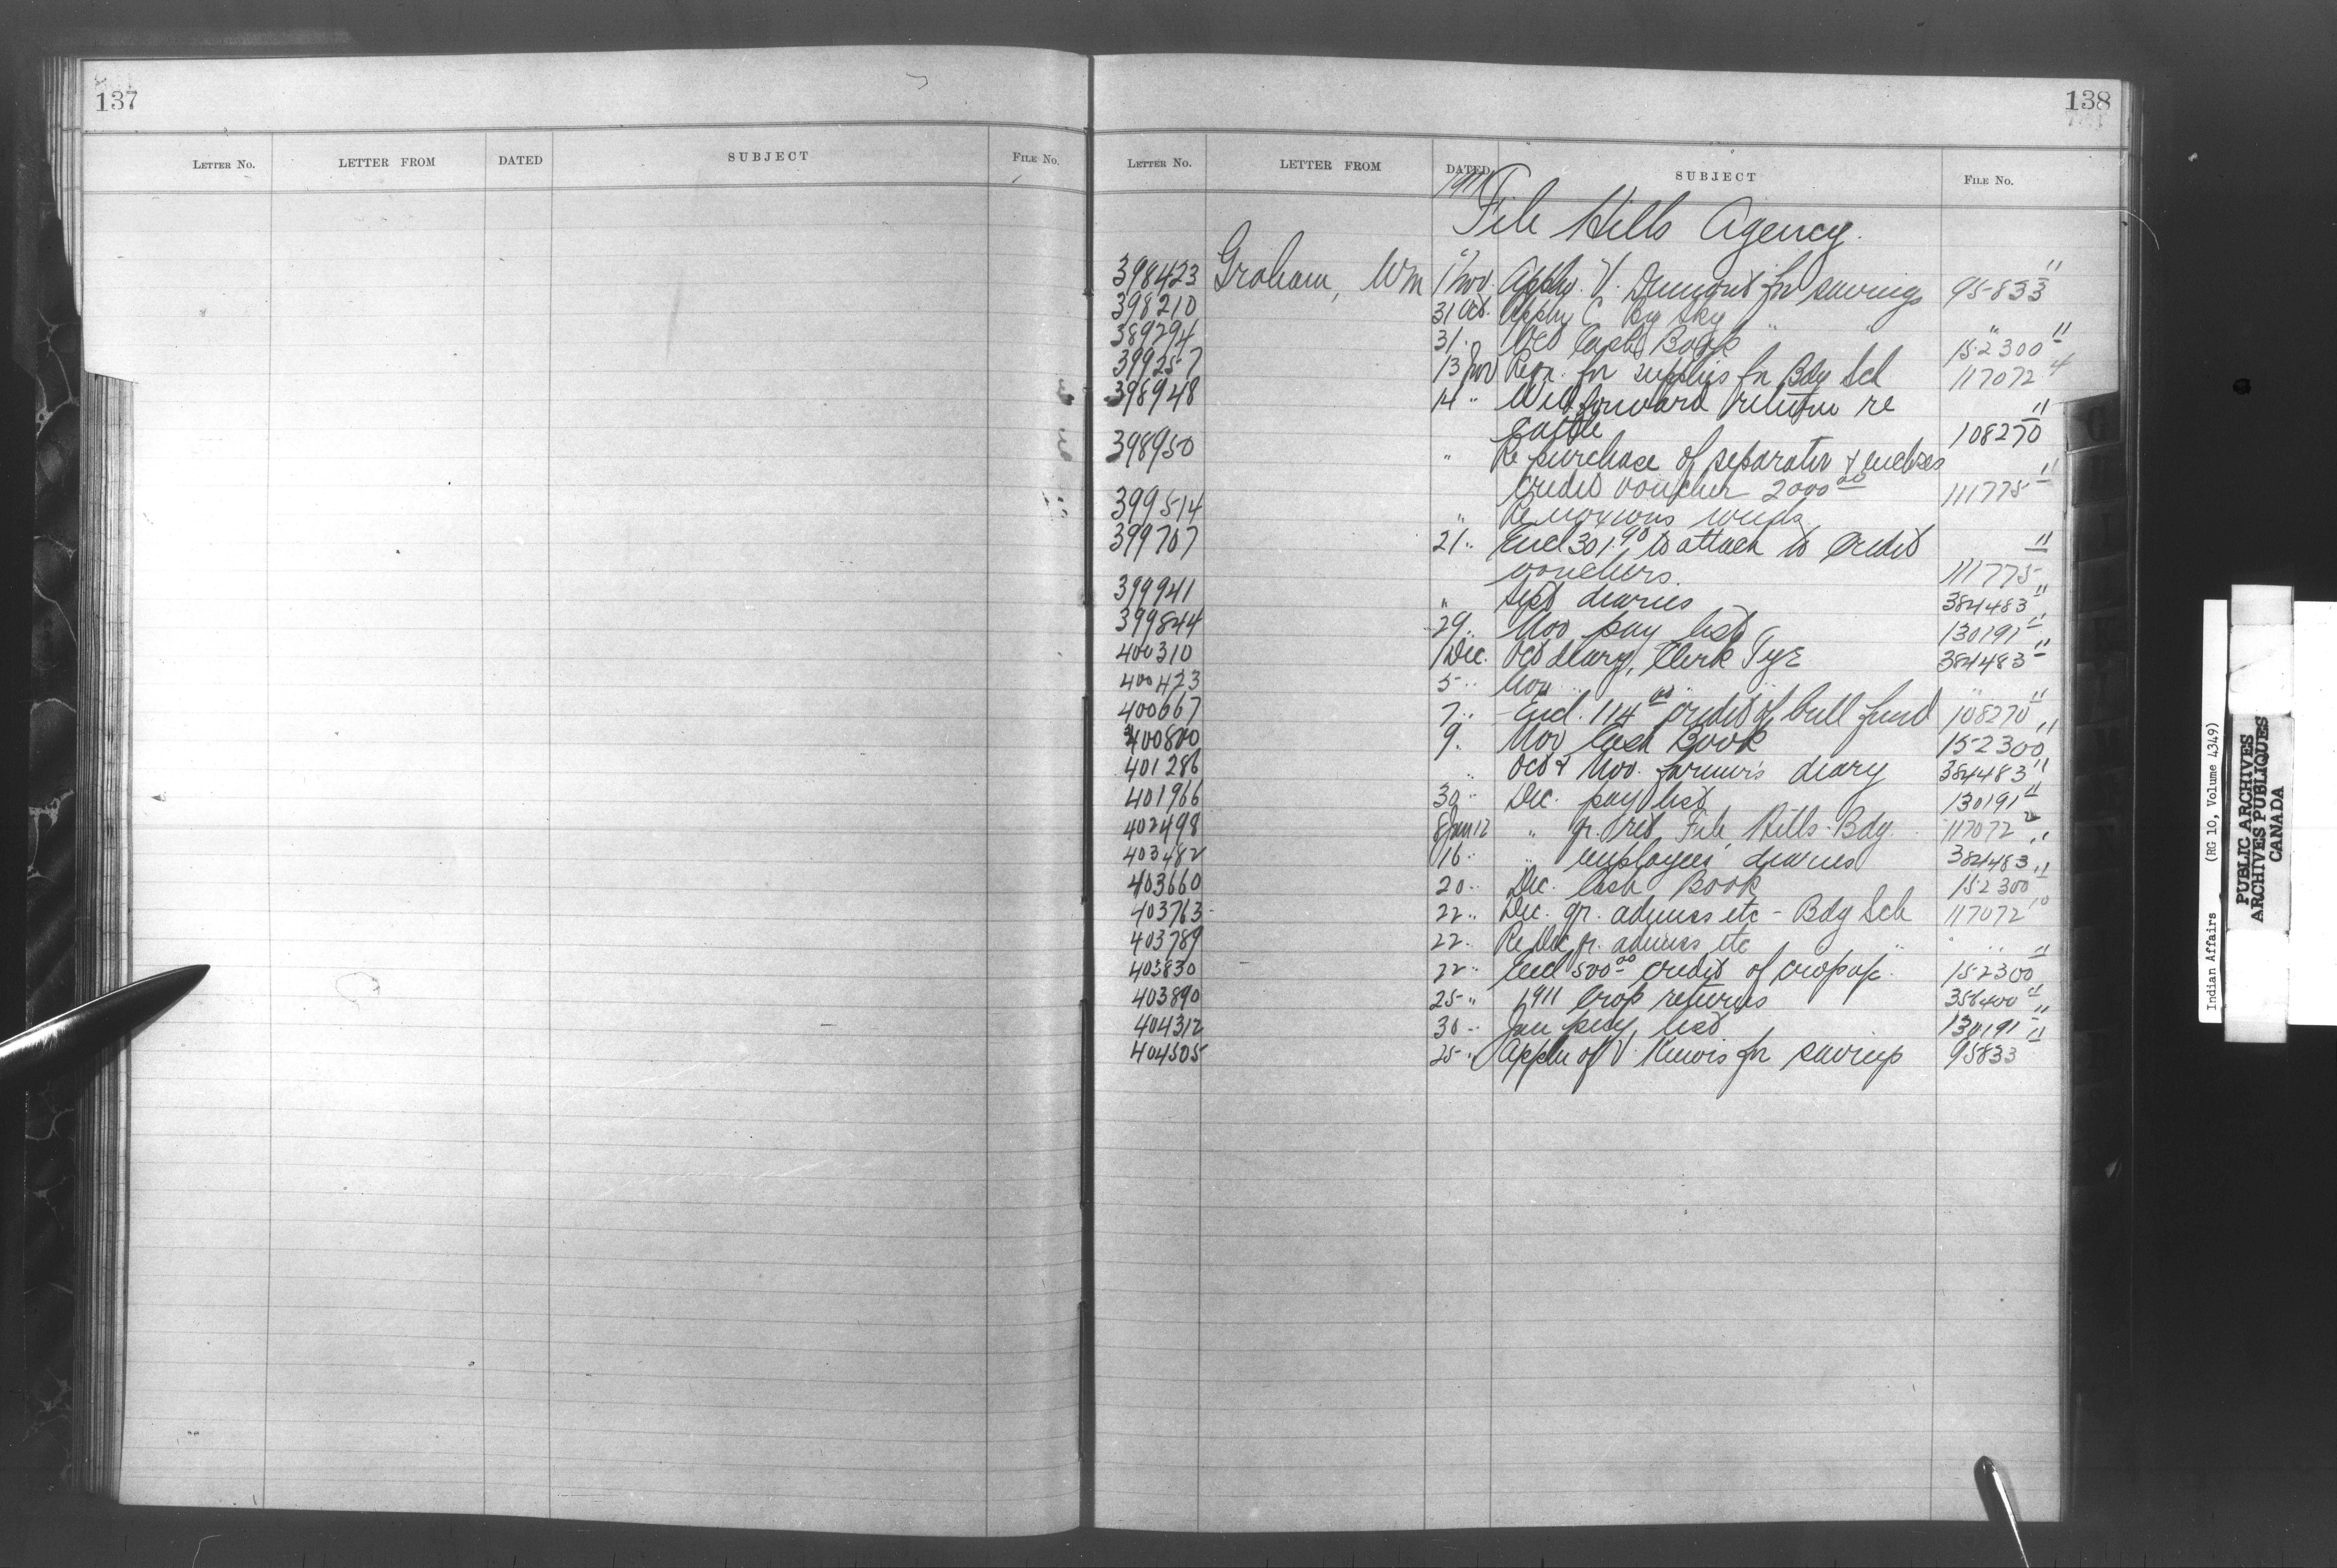 137
LETTER NO. LETTER FROM DATED SUBJECT FILE NO.
138
LETTER NO. LETTER FROM DATED SUBJECT FILE NO.
1911
File Hills Agency.
398423 Graham, Wm 1 Nov. Appln. V. Dumont for savings 95833 11
398210 31 Oct. Appln C. Big Sky " " "
389294 31 " Oct Cash Book 152300 11
399257 13 Nov Reqn. for supplies for Bdg Sch 117072 4
398948 14 " Will forward return re
cattle 108270 11
398950 " Re purchase of separator & encloses
credit voucher 2000 00 111775 11
399514 " Re noxious weeds
399707 21 " Encl 301.90 to attach to credit
vouchers. 111775 11
399941 " Sept diaries 384483 11
399844 29 " Nov pay list 130191 11
400310 1 Dec. Oct diary, Clerk Tye 384483 11
400423 5 " Nov " " "
400667 7 " Encl. 114 00 credit of bull fund 108270 11
400800 9 " Nov Cash Book 152300 11
401286 " Oct & Nov. farmer's diary 384483 11
401966 30 " Dec. pay list 130191 11
402498 8 Jan 12 " qr. ret File Hills Bdg. 117072 2
403482 16 " " employees diaries 384483 11
403660 20 " Dec. Cash Book 152300 11
403763 22 " Dec. qr. admiss etc - Bdg Sch 117072 10
403789 22 " Re Dec qr. admiss etc " " "
403830 22 " Encl 500 00 credit of crop 152300 11
403890 25 " 1911 Crop returns 356400 11
404312 30 " Jan pay list 130191 11
404505 25 " Appln of V. for savings 95833 11
Indian Affairs (RG 10, Volume 4349)
PUBLIC ARCHIVES
ARCHIVES PUBLIQUES
CANADA